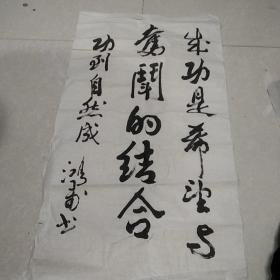 成功是希望与
奮鬥的结合
功到自然成
鸿 书